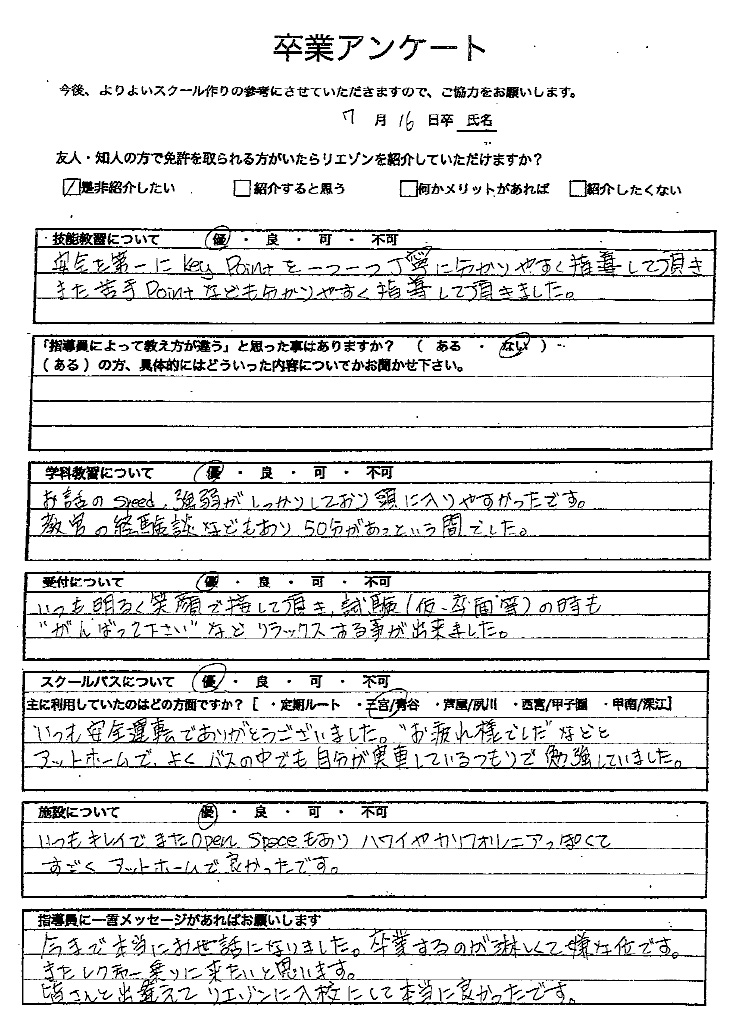 卒業アンケート
今後、よりよいスクール作りの参考にさせていただきますので、ご協力をお願いします。
7 月 16 日卒 氏名
友人・知人の方で免許を取られる方がいたらリエゾンを紹介していただけますか？
是非紹介したい 紹介すると思う 何かメリットがあれば 紹介したくない
技能教習について 優 ・ 良 ・ 可 ・ 不可
安全を第一に Key Pointを一つ一つ丁寧に分かりやすく指導して頂き
また苦手Pointなども分かりやすく指導して頂きました。
「指導員によって教え方が違う」と思った事はありますか？ （ ある ・ ない ）
（ ある ）の方、具体的にはどういった内容についてかお聞かせ下さい。
学科教習について 優 ・ 良 ・ 可 ・ 不可
お話の speed、強弱がしっかりしており頭に入りやすかったです。
教官の経験談などもあり 50分があっという間でした。
受付について 優 ・ 良 ・ 可 ・ 不可
いつも明るく笑顔で接して頂き、試験(仮、卒面等)の時も
"がんばって下さい"など リラックスする事が出来ました。
スクールバスについて 優 ・ 良 ・ 可 ・ 不可
主に利用していたのはどの方面ですか？ [ ・定期ルート ・三宮/青谷 ・芦屋/夙川 ・西宮/甲子園 ・甲南/深江]
いつも安全運転でありがとうございました。"お疲れ様でした"などと
アットホームで、よく バスの中でも自分が実車しているつもりで勉強していました。
施設について 優 ・ 良 ・ 可 ・ 不可
いつもキレイでまたOpen Spaceもあり ハワイやカリフォルニアっぽくて
すごく アットホームで良かったです。
指導員に一言メッセージがあればお願いします
今まで本当にお世話になりました。卒業するのが淋しくて嫌な位です。
またレクチャー乗りに来たいと思います。
皆さんと出逢えて リエゾンに入校にして本当に良かったです。